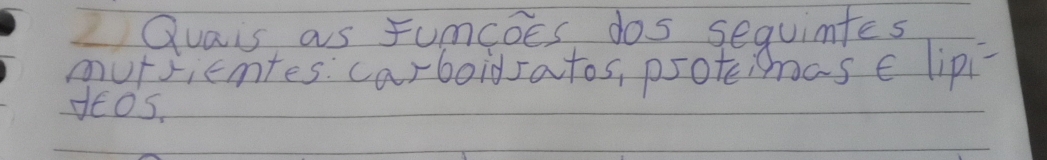 2) Quais as Funções dos seguintes
nutrientes: carboidratos, proteínas e lipí-
deos.